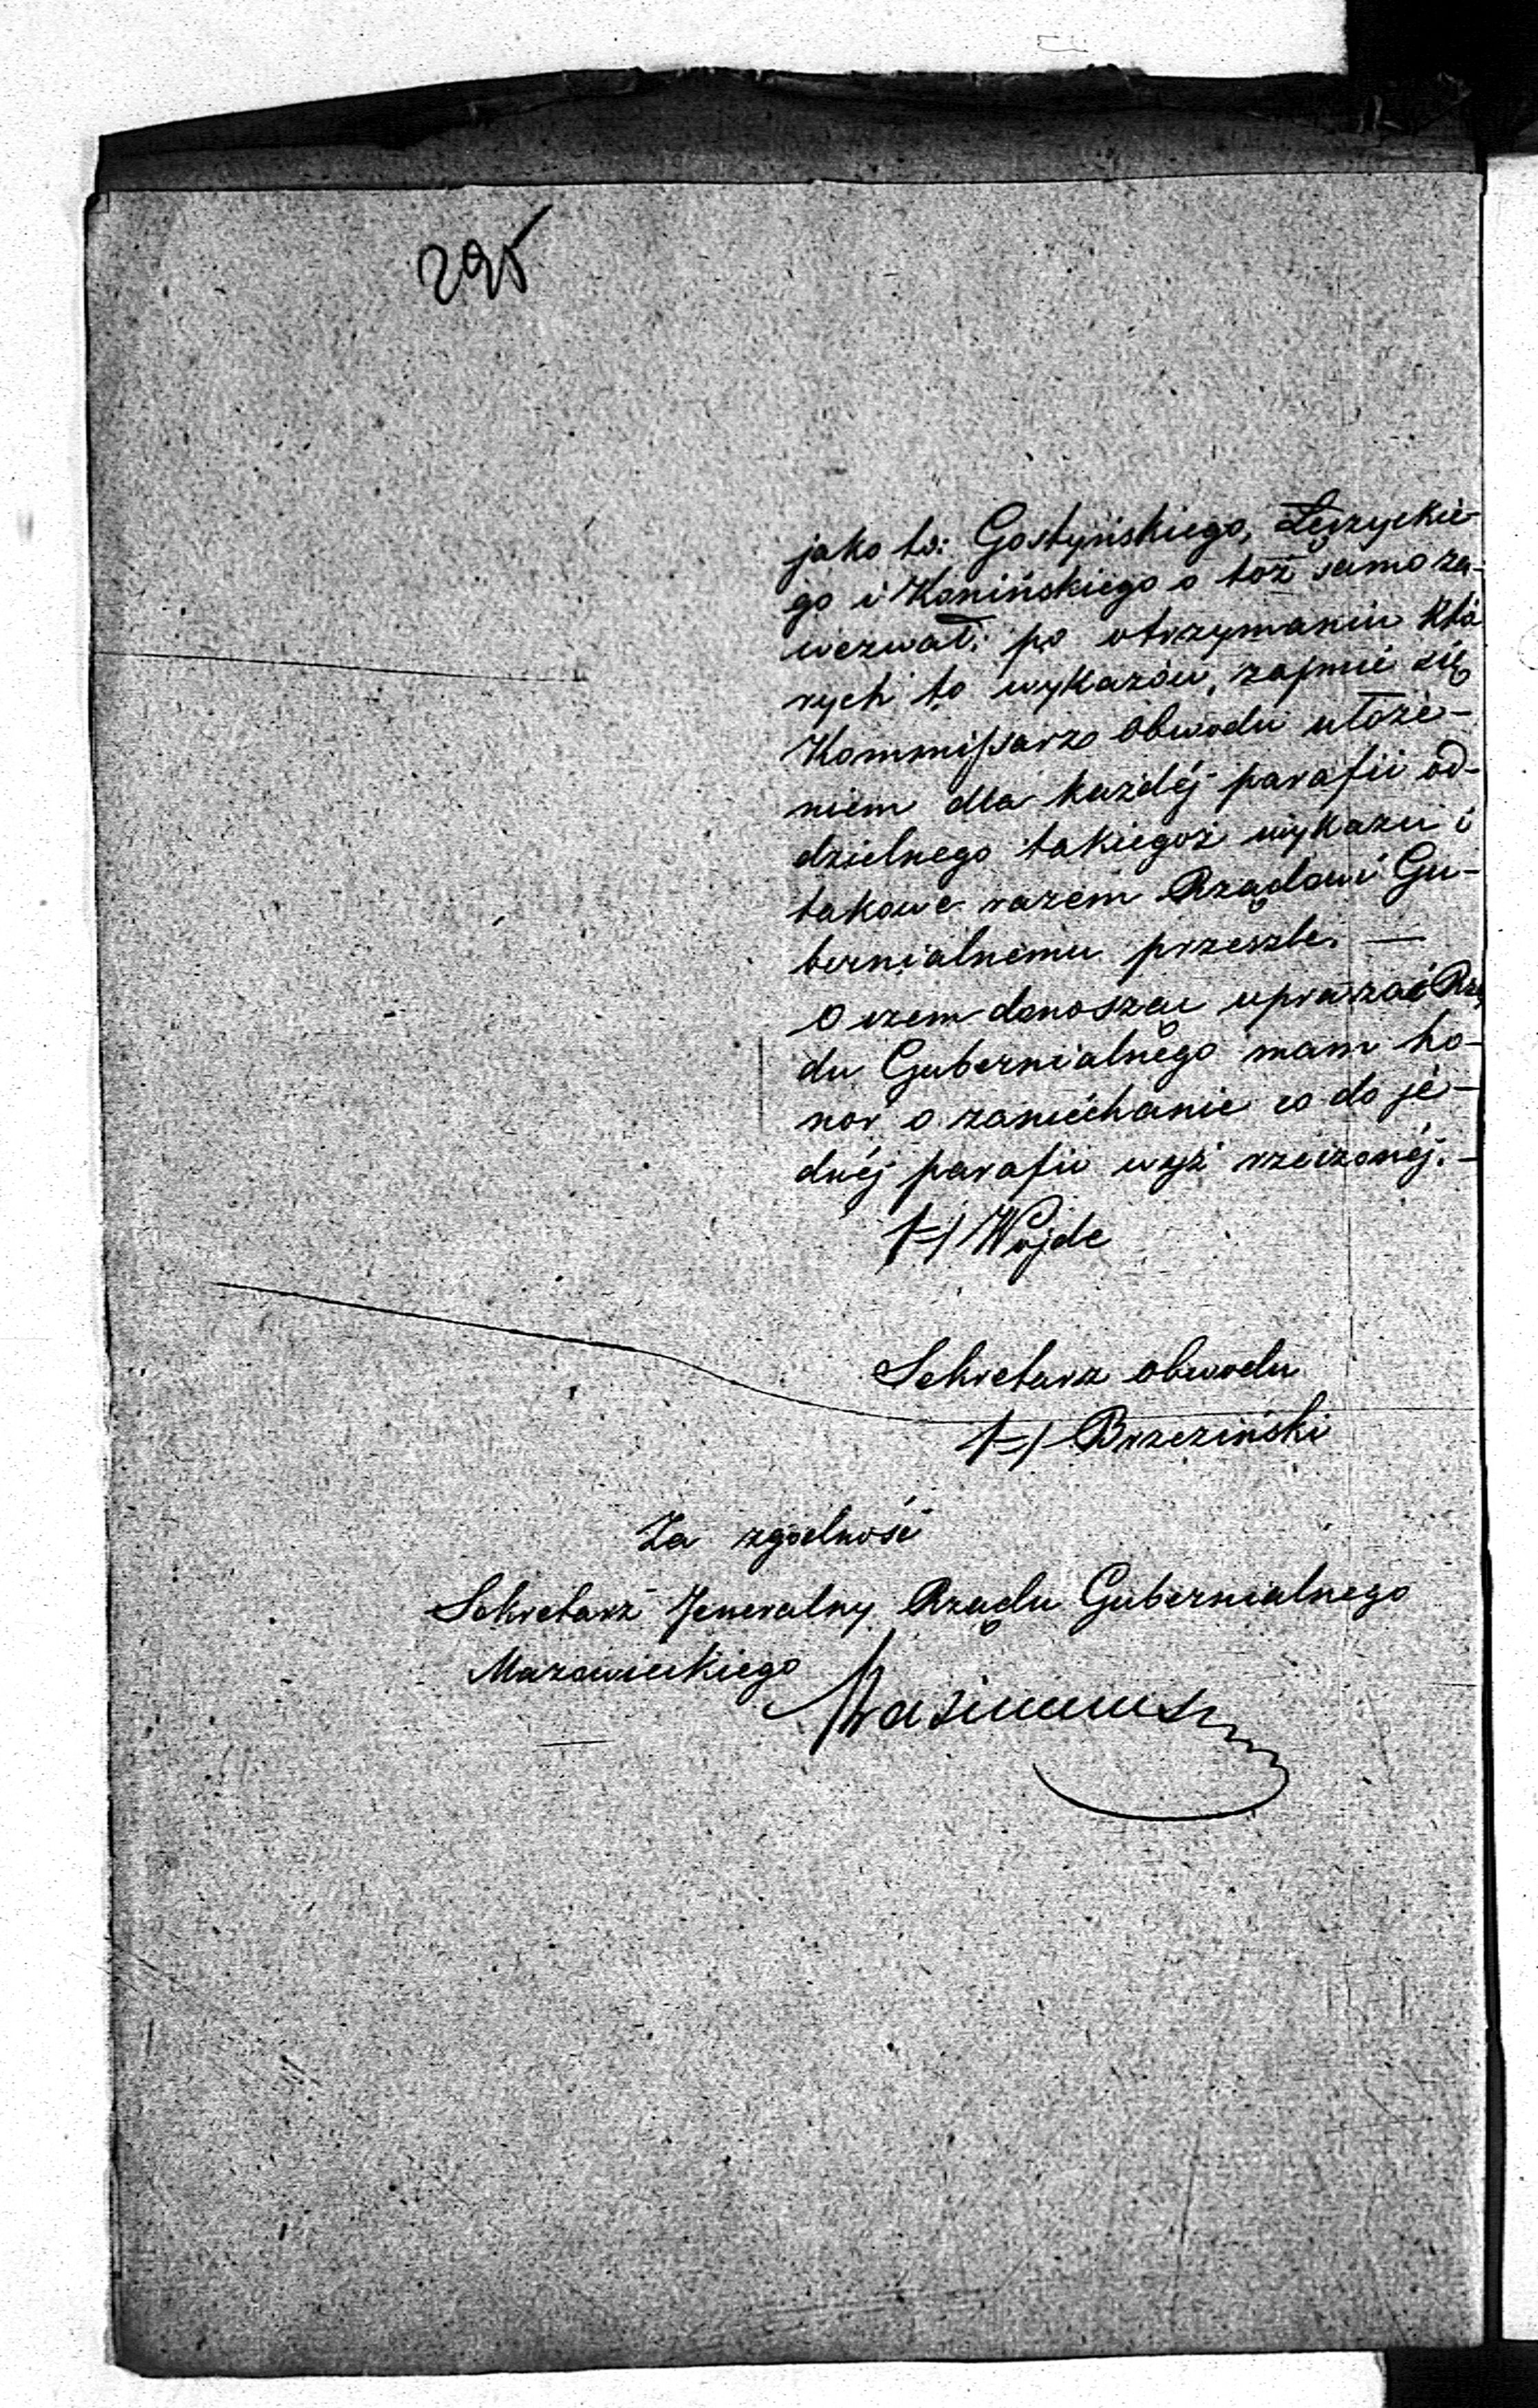 295
jako to: Gostyńskiego, Łęczyckie-
go i Konińskiego o toż samo za-
wezwał; po otrzymaniu któ
rych to wykazów, zajmie się
Kommissarz Obwodu ułoże-
niem dla każdéj parafii od-
dzielnego takiegoż wykazu i
takowe razem Rządowi Gu-
bernialnemu przeszle. —
O czem donosząc upraszać Rzą
du Gubernialnego mam ho-
nor o zaniechanie co do je-
dnéj parafii wyż rzeczonéj. —
/-/ Wojde
Sekretarz obwodu
/-/ Brzeziński
Za zgodność
Sekretarz Jeneralny Rządu Gubernialnego
Mazowieckiego